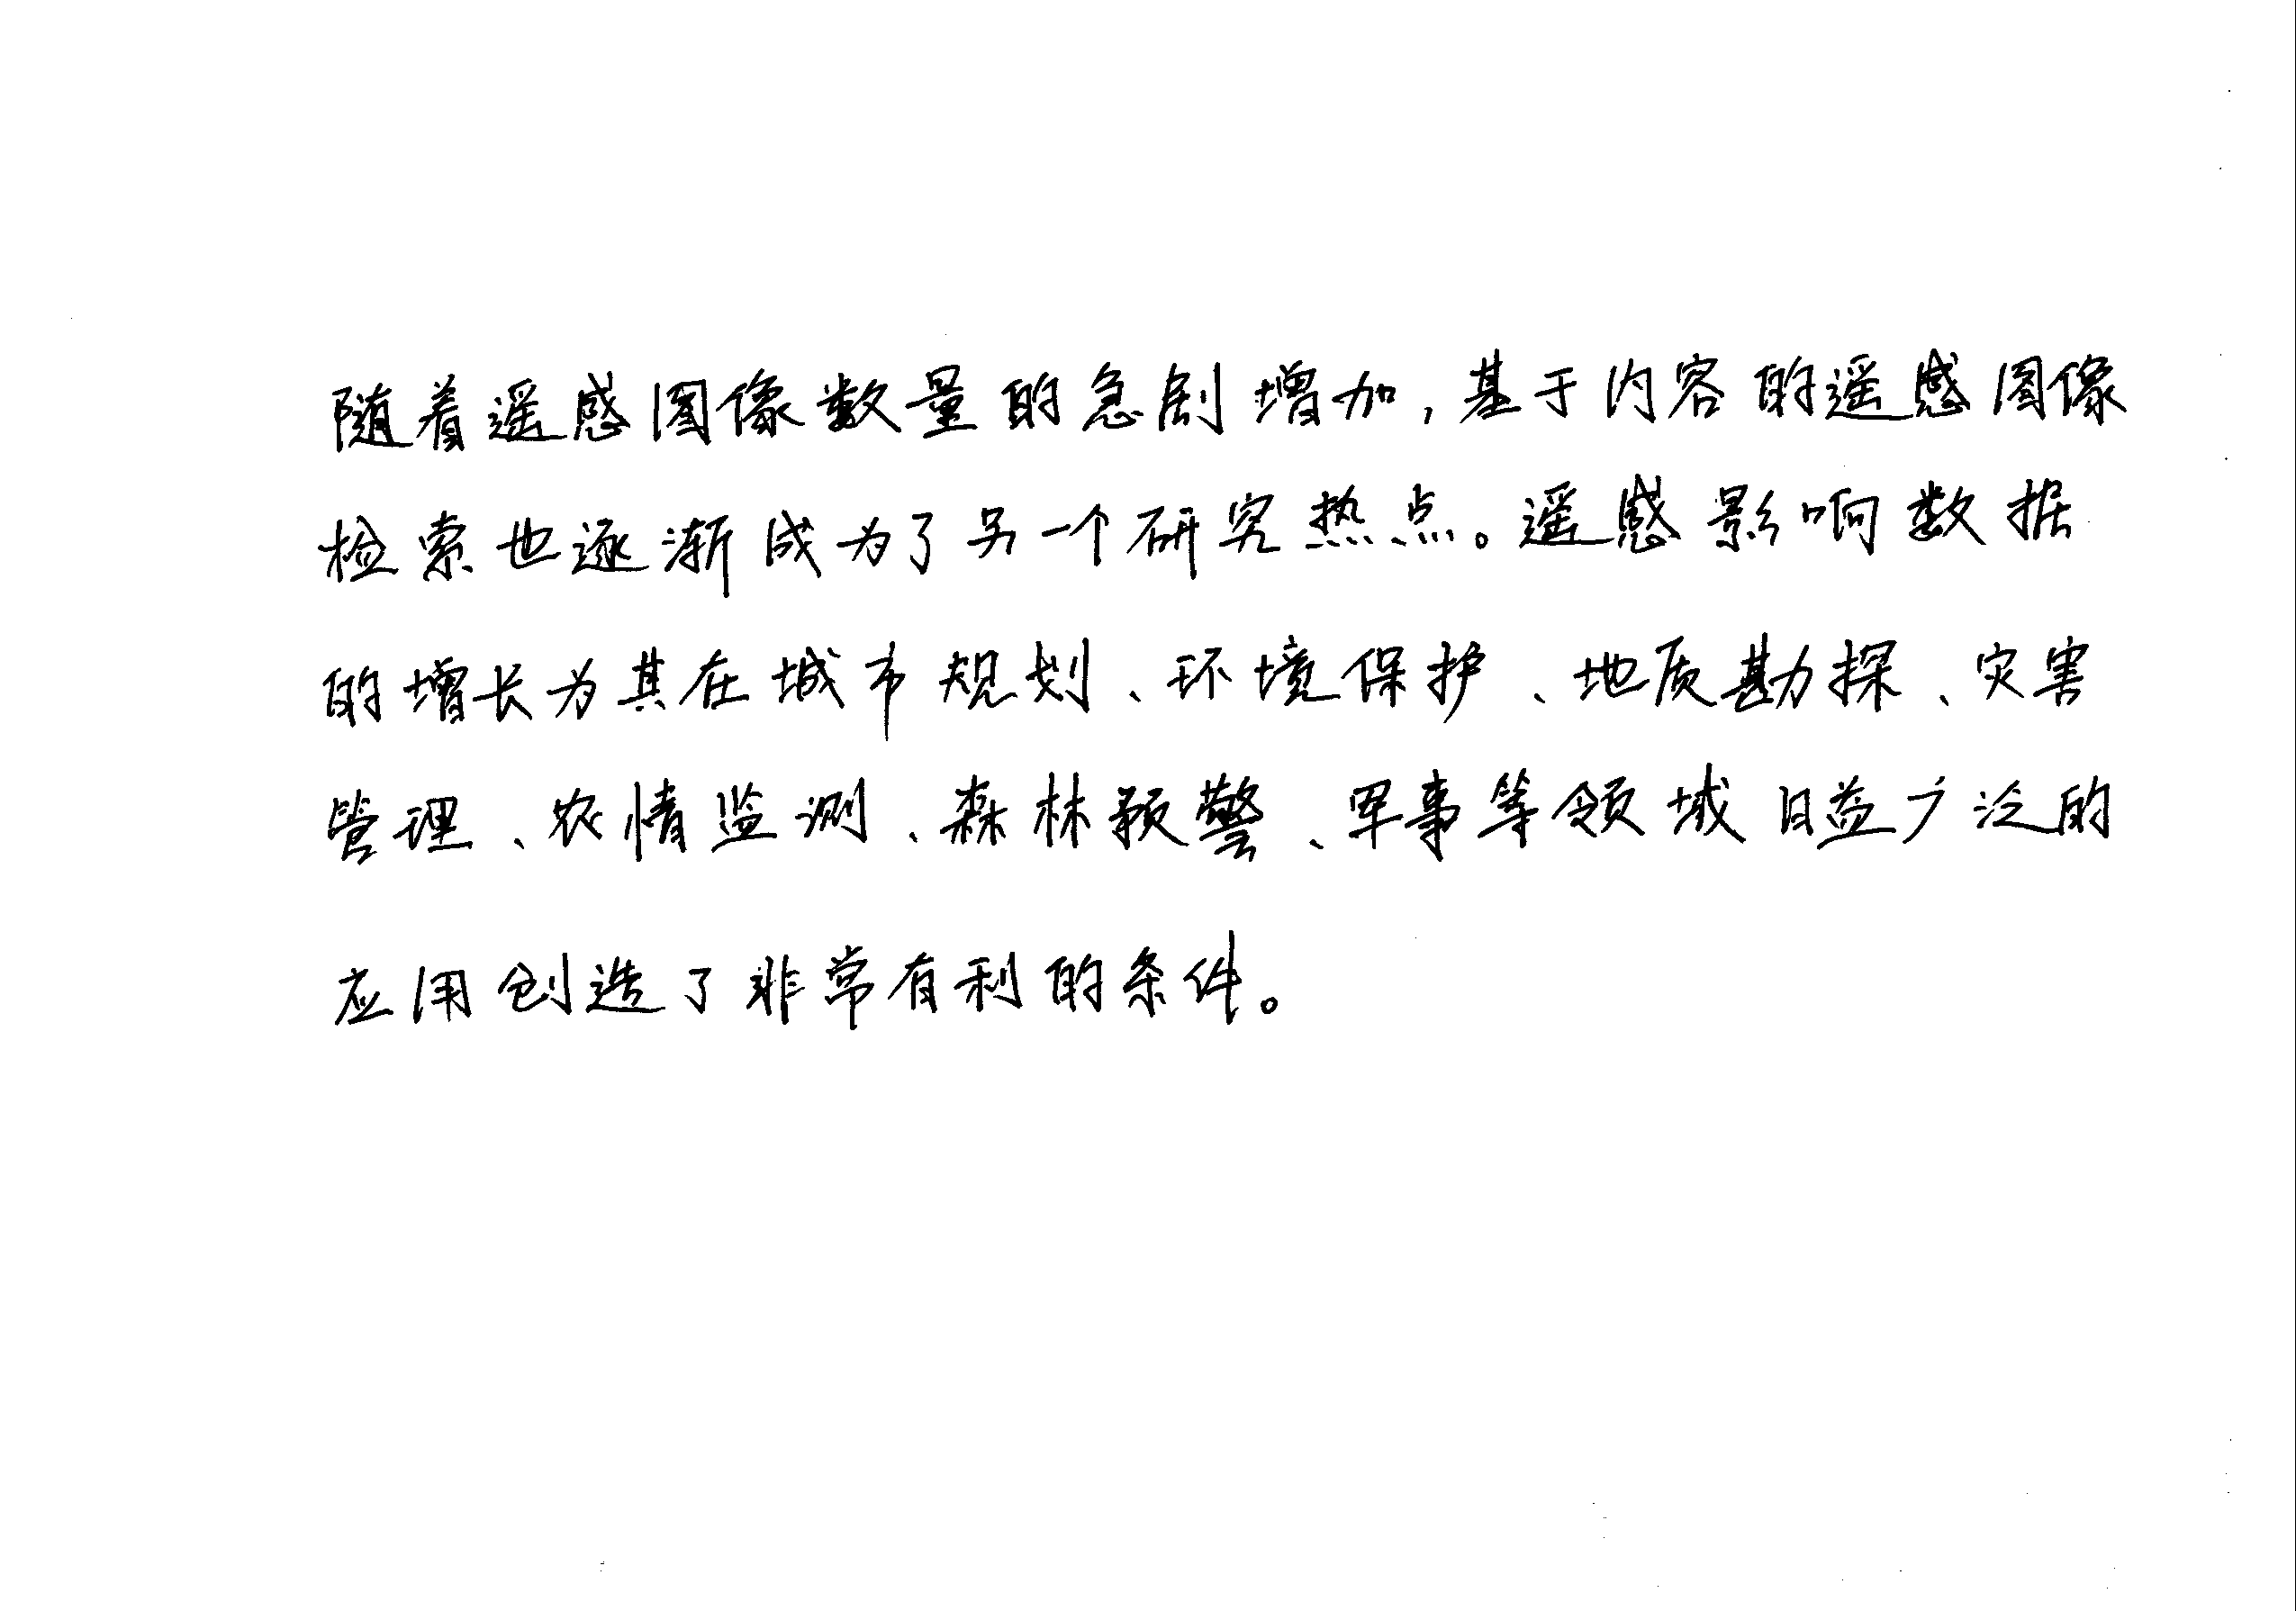 随着遥感图像数量的急剧增加，基于内容的遥感图像
检索也逐渐成为了另一个研究热点。遥感影响数据
的增长为其在城市规划、环境保护、地质勘探、灾害
管理、农情监测、森林预警、军事等领域日益广泛的
应用创造了非常有利的条件。